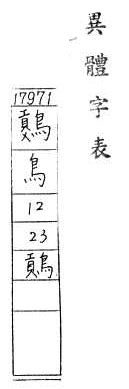 異體字表
17971
鳥
12
23